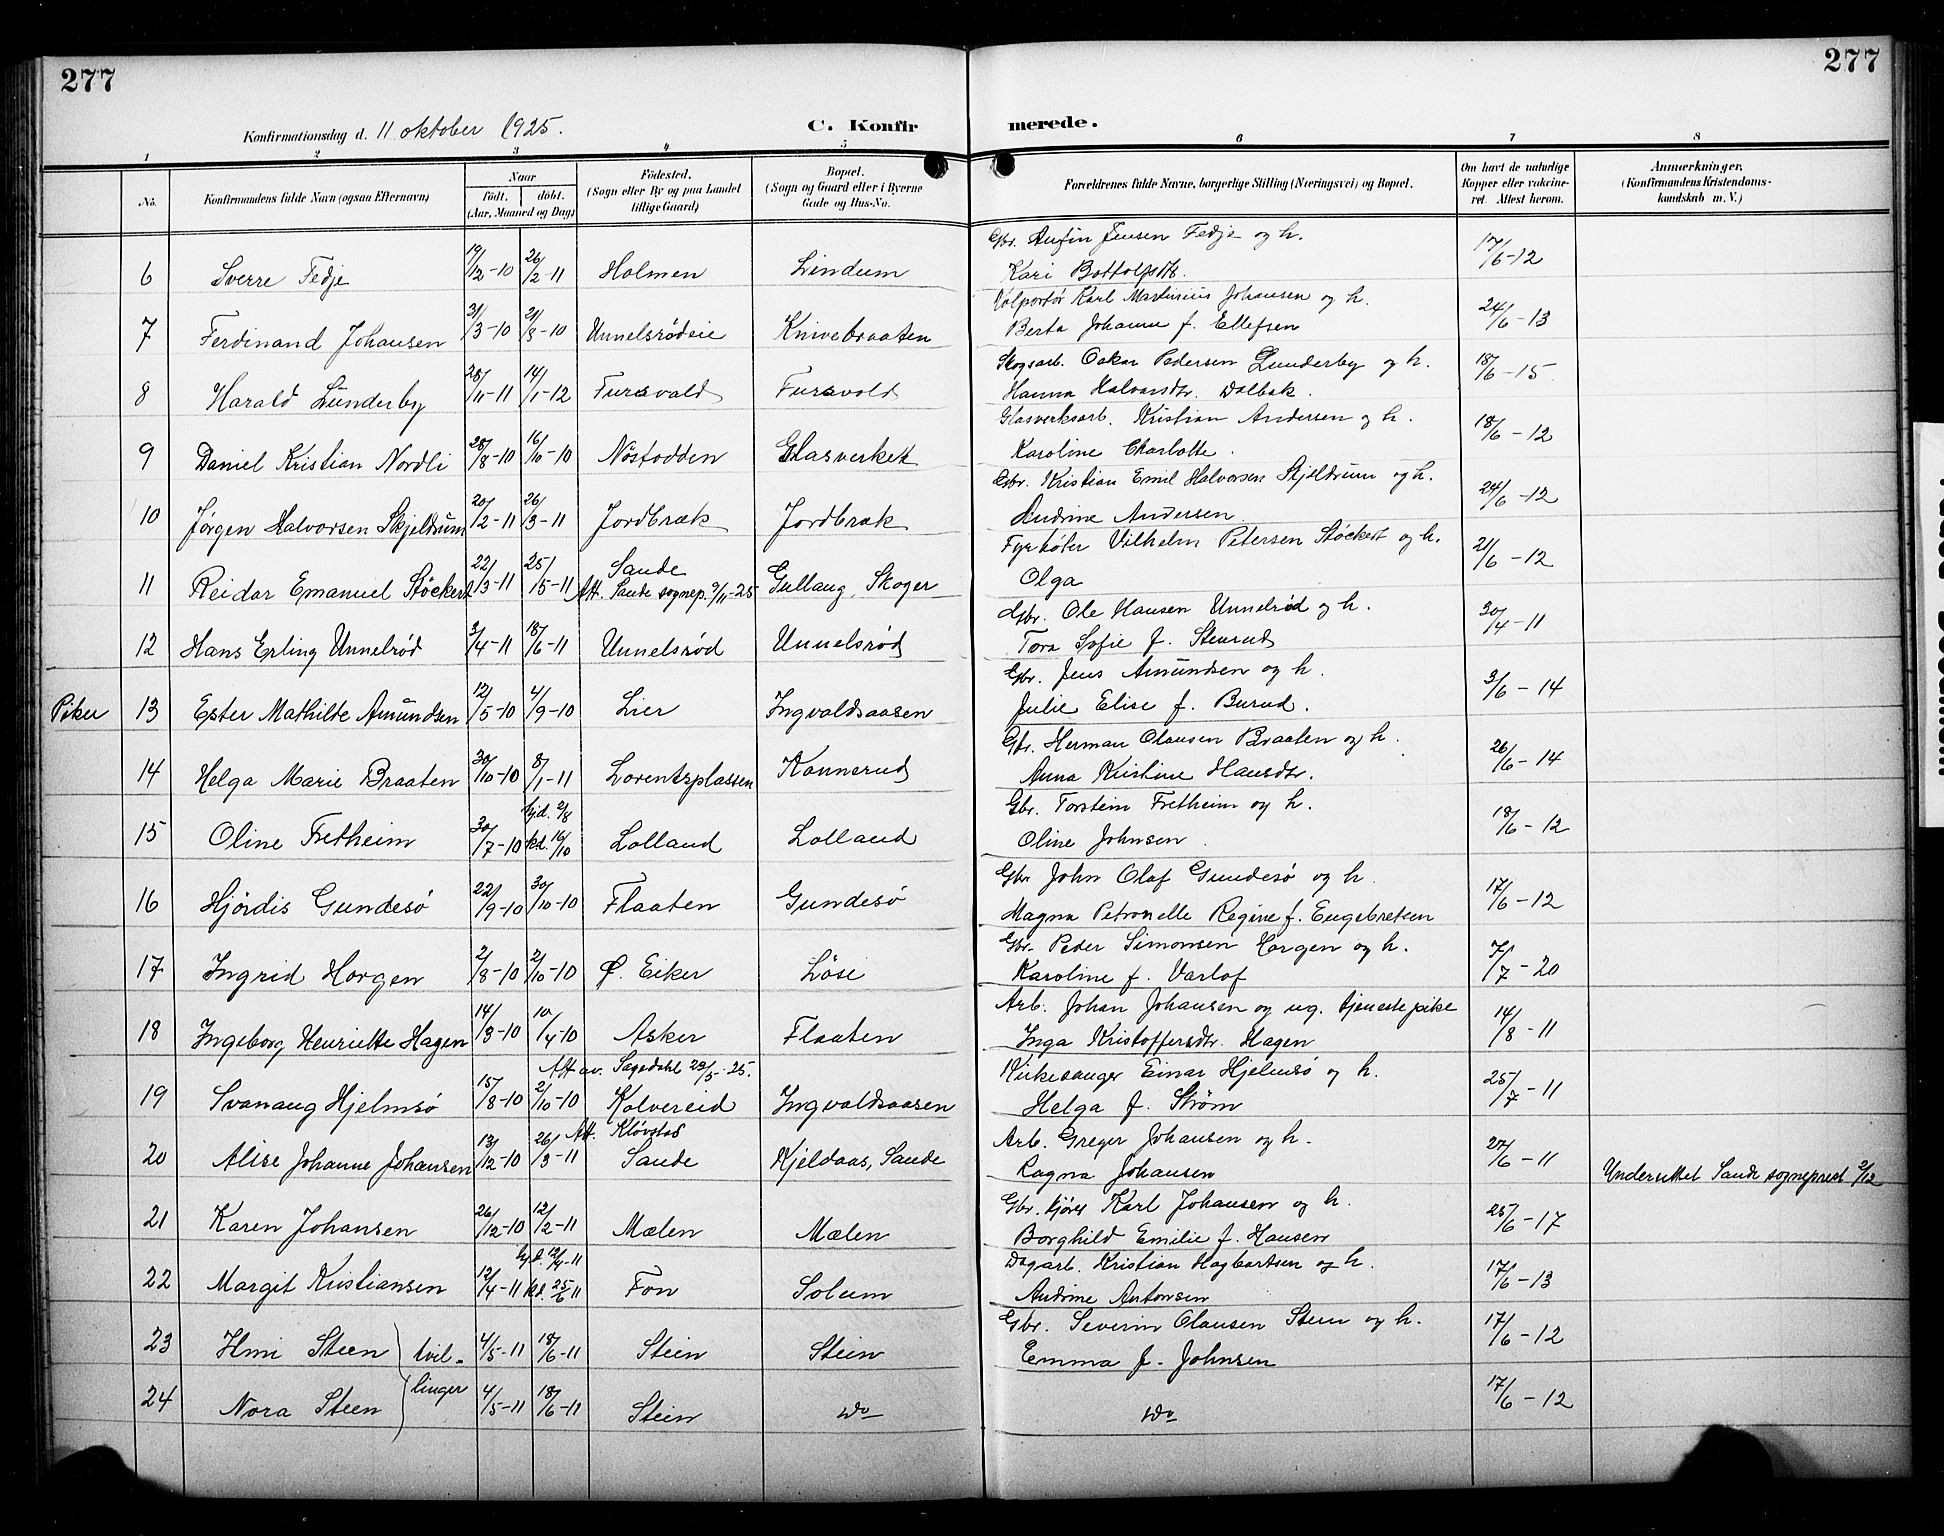 277
277
Konfirmationsdag d. 11 oktober 1925.
C. Konfirmerede.
1 2 3 4 5 6 7 8
No.
Konfirmandens fulde Navn (ogsaa Efternavn)
Naar
født. døbt.
(Aar, Maaned og Dag)
Födested.
(Sogn eller By og paa Landet
tillige Gaard)
Bopæl.
(Sogn og Gaard eller i Byerne
Gade og Hus-No.
Forældrenes fulde Navne, borgerlige Stilling (Næringsvei) og Bopæl.
Om havt de naturlige
Kopper eller vakcine-
ret. Attest herom.
Anmærkninger,
(Konfirmandens Kristendoms-
kundskab m. V.)
6 Sverre Fedje 19/12-10 26/2-11 Holmen Lindum Gbr. Anfin Jensen Fedje og h. 17/6-12
Kari Bottolfsdtr.
7 Ferdinand Johansen 31/3-10 21/5-10 Unnelsrødeie Knivebraaten Valportør Karl Martinius Johansen og h. 24/6-13
Berta Johanne f. Ellefsen
8 Harald Lunderby 28/11-11 14/1-12 Furuvald Furuvold Skogsarb. Oskar Pedersen Lunderby og h. 18/6-15
Hanna Halvorsdtr. Dalbak.
9 Daniel Kristian Nordli 28/8-10 16/10-10 Nøstodden Glasverket Glasverksarb. Kristian Andersen og h. 18/6-12
Karoline Charlotte.
10 Jørgen Halvorsen Skjeldrum 20/2-11 26/3-11 Jordbræk Jordbræk Gbr. Kristian Emil Halvorsen Skjeldrum og h. 24/6-12
Andrine Andersen
11 Reidar Emanuel Støckert 22/3-11 25/5-11 Sande Gullaug, Skoger Fyrbøter Vilhelm Petersen Støckert og h. 21/6-12
Att. Sande sognep. 9/11-25 Olga
12 Hans Erling Unnelrød 3/4-11 18/6-11 Unnelsrød Unnelsrød Gbr. Ole Hansen Unnelrød og h. 30/4-11
Tora Sofie f. Stenrud
Piker 13 Ester Mathilde Amundsen 12/5-10 4/9-10 Lier Ingvaldsaasen Gbr. Jens Amundsen og h. 3/6-14
Julie Elise f. Burud.
14 Helga Marie Braaten 30/10-10 8/1-11 Lorentzplassen Konnerud Gbr. Herman Olausen Braaten og h. 26/6-14
Anna Kristine Hansdtr.
15 Oline Fretheim 30/7-10 hjd. 2/8 kd. 16/10 Lolland Lolland Gbr. Torstein Fretheim og h. 18/6-12
Oline Johnsen
16 Hjørdis Gundesø 22/9-10 30/10-10 Flaaten Gundesø Gbr John Olaf Gundesø og h. 17/6-12
Magna Petronelle Regine f. Engebretsen
17 Ingrid Horgen 2/8-10 2/10-10 Ø. Eiker Løse Gbr. Peder Simonsen Horgen og h. 7/7-20
Karoline f. Varlof
18 Ingeborg Henriette Hagen 14/3-10 10/4-10 Asker Flaaten Arb. Johan Johansen og ug. tjenestepike 14/8-11
Inga Kristoffersdtr. Hagen
Att av. Sagedahl 23/5-25.
19 Svanaug Hjelmsø 15/8-10 2/10-10 Kolvereid Ingvaldsaasen Kirkesanger Einar Hjelmsø og h. 25/7-11
Helga f. Strøm
Att. Kløvstad
20 Alise Johanne Johansen 13/12-10 26/3-11 Sande Kjeldaas, Sande Arb. Greger Johansen og h. 27/6-11
Ragna Johansen Underrettet Sande sogneprest 2/12
21 Karen Johansen 26/12-10 12/2-11 Mælen Mælen Gbr. kjører Karl Johansen og h. 25/6-17
Borghild Emilie f. Hansen
22 Margit Kristiansen 12/4-11 hjd. 12/4-11 kd. 25/6 11 Fon Solum Dagarb. Kristian Hagbartsen og h. 17/6-13
Andrine Antonsen
23 Himi Steen tvil- 4/5-11 18/6-11 Steen Steen Gbr. Severin Olausen Steen og h. 17/6-12
Emma f. Johnsen
24 Nora Steen linger 4/5-11 18/6-11 Steen do do 17/6-12